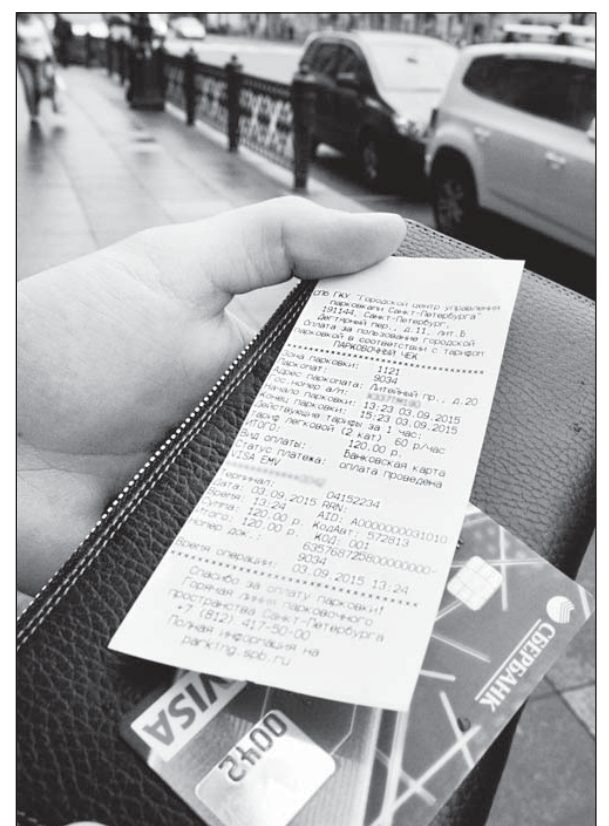 СПб ГКУ "Городской центр управления
парковками Санкт-Петербурга"
191144, Санкт-Петербург,
Дегтярный пер., д.11, лит.Б
Оплата за пользование городской
парковкой в соответствии с тарифом
ПАРКОВОЧНЫЙ ЧЕК
Зона парковки: 1121
Паркомат: 9034
Адрес паркомата: Литейный пр., д.20
Гос.номер а/м:
Начало парковки: 13:23 03.09.2015
Конец парковки: 15:23 03.09.2015
Действующие тарифы за 1 час:
Тариф легковой (2 кат) 60 р/час
ИТОГО: 120.00 р.
Вид оплаты: Банковская карта
Статус платежа: оплата проведена
VISA EMV
Терминал: 04152234
Дата: 03.09.2015 RRN:
Время: 13:24 AID: A0000000031010
Сумма: 120.00 р. КодАвт: 572813
Итого: 120.00 р. КОД: 001
Номер док.: 635768725800000000-
9034
Время операции: 03.09.2015 13:24
Спасибо за оплату парковки!
Горячая линия парковочного
пространства Санкт-Петербурга
+7 (812) 417-50-00
Полная информация на
parking.spb.ru
СБЕРБАНК
VISA
0042